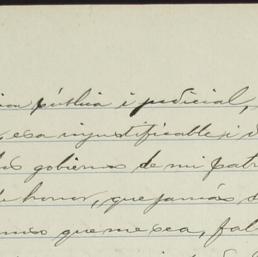 pública i judicial,
esa injustificable i
gobierno de mi patr
honor, que jamás
que me sea, fal